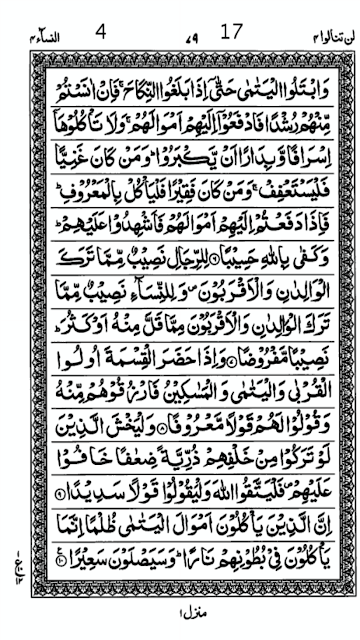 لن تنالوا ٤ 17 ٧٩ 4 النساء ٤
وَابْتَلُوا الْيَتٰمٰى حَتّٰۤى اِذَا بَلَغُوا النِّكَاحَ ۚ فَاِنْ اٰنَسْتُمْ
مِّنْهُمْ رُشْدًا فَادْفَعُوْۤا اِلَيْهِمْ اَمْوَالَهُمْ ۚ وَلَا تَاْكُلُوْهَاۤ
اِسْرَافًا وَّبِدَارًا اَنْ يَّكْبَرُوْا ؕ وَمَنْ كَانَ غَنِيًّا
فَلْيَسْتَعْفِفْ ۚ وَمَنْ كَانَ فَقِيْرًا فَلْيَاْكُلْ بِالْمَعْرُوْفِ ؕ
فَاِذَا دَفَعْتُمْ اِلَيْهِمْ اَمْوَالَهُمْ فَاَشْهِدُوْا عَلَيْهِمْ ؕ
وَكَفٰى بِاللّٰهِ حَسِيْبًا ۝٦ لِلرِّجَالِ نَصِيْبٌ مِّمَّا تَرَكَ
الْوَالِدٰنِ وَالْاَقْرَبُوْنَ ۪ وَلِلنِّسَآءِ نَصِيْبٌ مِّمَّا
تَرَكَ الْوَالِدٰنِ وَالْاَقْرَبُوْنَ مِمَّا قَلَّ مِنْهُ اَوْ كَثُرَ ؕ
نَصِيْبًا مَّفْرُوْضًا ۝٧ وَاِذَا حَضَرَ الْقِسْمَةَ اُولُوا
الْقُرْبٰى وَالْيَتٰمٰى وَالْمَسٰكِيْنُ فَارْزُقُوْهُمْ مِّنْهُ
وَقُوْلُوْا لَهُمْ قَوْلًا مَّعْرُوْفًا ۝٨ وَلْيَخْشَ الَّذِيْنَ
لَوْ تَرَكُوْا مِنْ خَلْفِهِمْ ذُرِّيَّةً ضِعٰفًا خَافُوْا
عَلَيْهِمْ ۪ فَلْيَتَّقُوا اللّٰهَ وَلْيَقُوْلُوْا قَوْلًا سَدِيْدًا ۝٩
اِنَّ الَّذِيْنَ يَاْكُلُوْنَ اَمْوَالَ الْيَتٰمٰى ظُلْمًا اِنَّمَا
يَاْكُلُوْنَ فِيْ بُطُوْنِهِمْ نَارًا ؕ وَسَيَصْلَوْنَ سَعِيْرًا ۝١٠
منزل ١